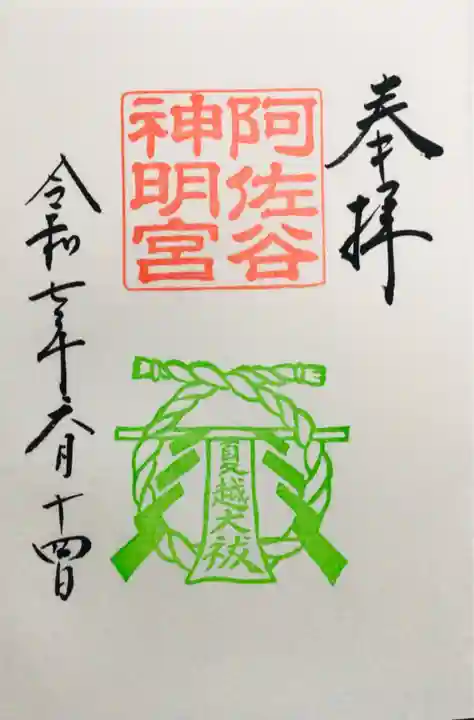 奉拝
阿佐谷
神明宮
夏越大祓
令和七年六月十四日